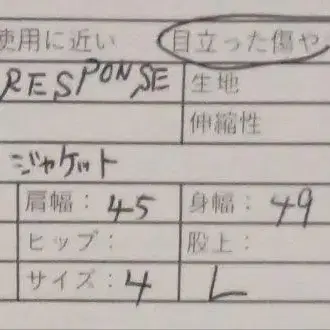 使用に近い 目立った傷や
RESPONSE 生地
伸縮性
ジャケット
肩幅： 45 身幅： 49
ヒップ： 股上：
サイズ： 4 L